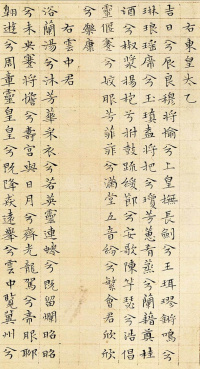 右東皇太乙
吉日兮辰良穆將愉兮上皇撫長劍兮玉珥璆鏘鳴兮
琳琅瑤席兮玉瑱盍將把兮瓊芳蕙肴蒸兮蘭藉奠桂
酒兮椒漿揚枹兮拊鼓疏緩節兮安歌陳竽瑟兮浩倡
靈偃蹇兮姣服芳菲菲兮滿堂五音紛兮繁會君欣欣
兮樂康
右雲中君
浴蘭湯兮沐芳華采衣兮若英靈連蜷兮既留爛昭昭
兮未央蹇將憺兮壽宮與日月兮齊光龍駕兮帝服聊
翱遊兮周章靈皇皇兮既降猋遠舉兮雲中覽冀州兮